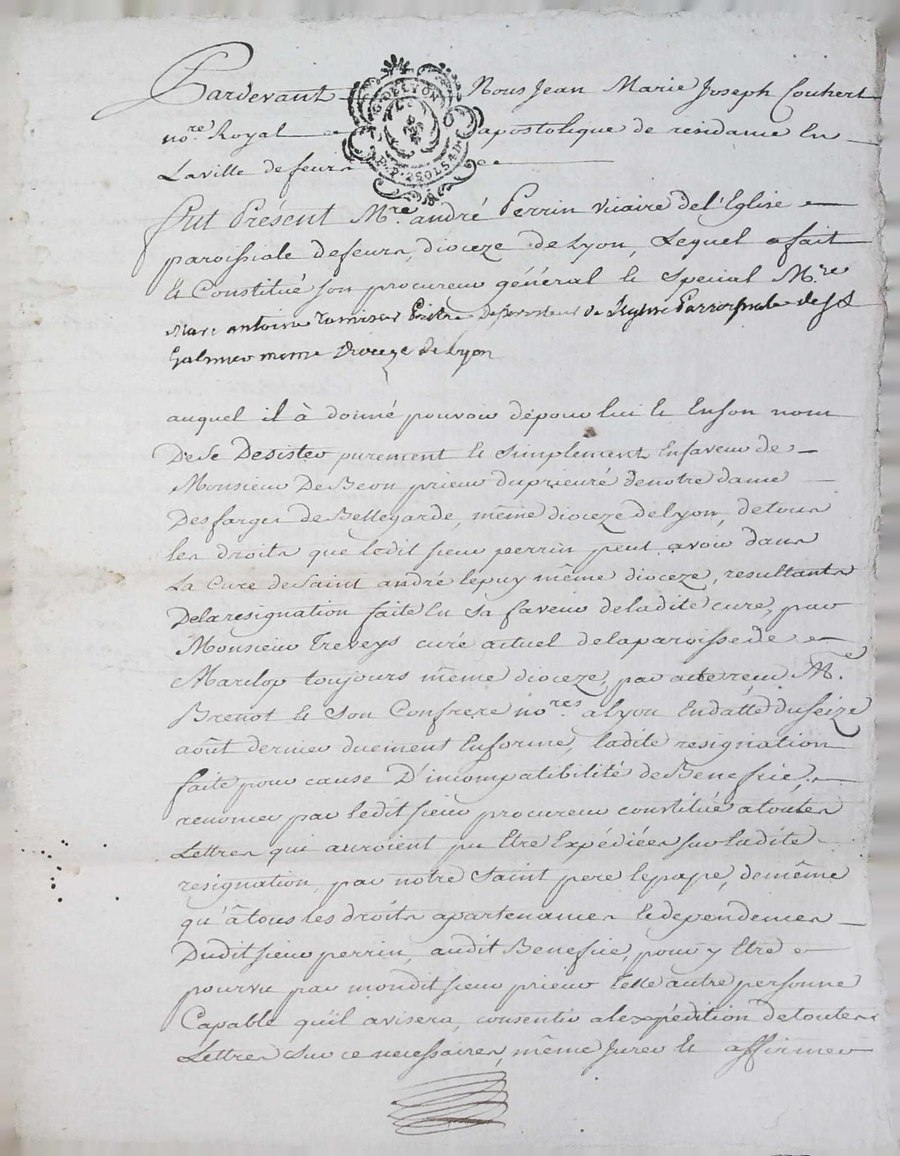 Pardevant Nous Jean Marie Joseph Couhert
nore. Royal apostolique de residame En
La ville de feurs
Fut Présent Mre. andré Perrin Vicaire de l'Eglise
paroissiale de feurs, dioceze de Lyon, Lequel a fait
Et Constitué son procureur général Et Special Mre
Marc antoine Prêtre de Leglise Parroissiale de St
Galmier meme Dioceze de Lyon
auquel il à donné pouvoir de pour lui Et En son nom
De Se Desister purement Et Simplement En faveur de
Monsieur De Beon prieur du prieuré de notre dame
Des farges de Bellegarde, même dioceze de Lyon, de tous
les droits que ledit sieur perrin peut avoir dans
La Cure de Saint andré le puy même dioceze, resultants
De la resignation faite En Sa faveur de la dite cure, par
Monsieur Treveys curé actuel de la paroisse de
Marclop toujours même dioceze, par acte reçu Me.
Brenot Et Son Confrere nores. a Lyon En datte du Seize
août dernier duement En forme, ladite resignation
faite pour cause D'incompatibilité de Benefice,
renoncer par ledit sieur procureur constitué a toutes
Lettres qui auroient pu Etre Expédiées sur ladite
resignation, par notre Saint pere le pape, de même
qu'à tous les droits apartenances Et dependences
Dudit sieur perrin, audit Benefice, pour y Etre
pourvu par mondit sieur prieur Telle autre personne
Capable qu'il avisera, consentir a l'expédition de toutes
Lettres Sur ce necessaires, même Jurer Et affirmer